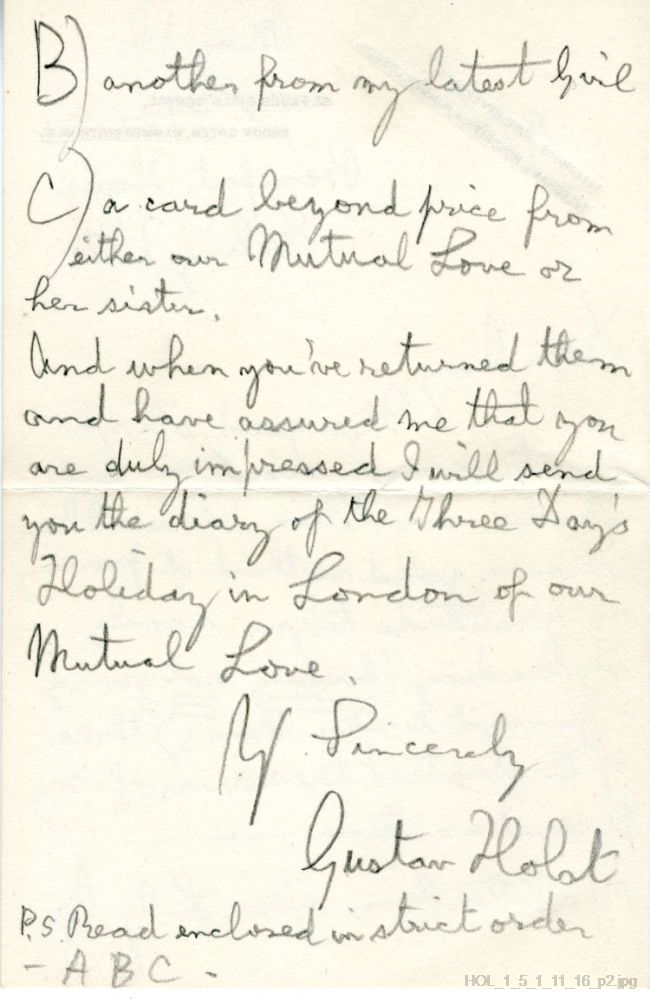 B) another from my latest Girl
C) a card beyond price from
either our Mutual Love or
her sister.
And when you've returned them
and have assured me that you
are duly impressed I will send
you the diary of the Three Day's
Holiday in London of our
Mutual Love.
Yr Sincerely
Gustav Holst
P.S. Read enclosed in strict order
- A B C -
HOL_1_5_1_11_16_p2.jpg